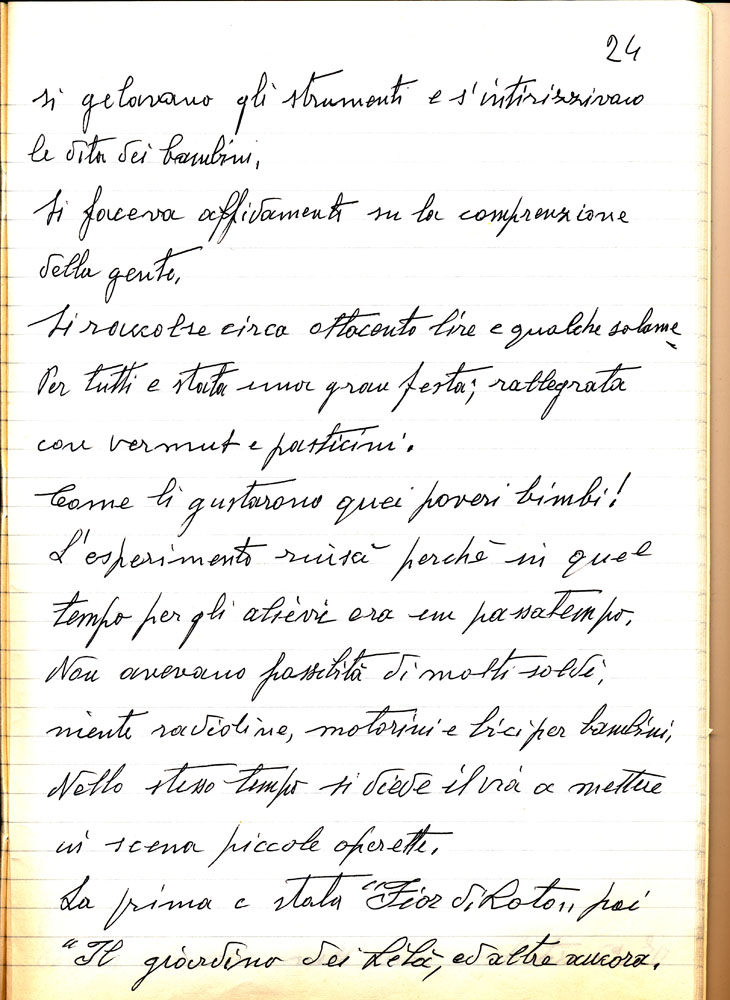 24
si gelavano gli strumenti e s'intirizzivano
le dita dei bambini,
Si faceva affidamenti su la comprenzione
della gente,
Si raccolse circa ottocento lire e qualche salame
Per tutti e stata una gran festa; rallegrata
con vermut e pasticini.
Come li gustarono quei poveri bimbi!
L'esperimento riuscì perchè in quel
tempo per gli alièvi era un passatempo.
Non avevano possibilità di molti soldi,
niente radioline, motorini e bici per bambini,
Nello stesso tempo si diede il via a mettere
in scena piccole operette.
La prima e stata "Fior di Loto,, poi
"Il giardino dei Lilà, ed altre ancora.